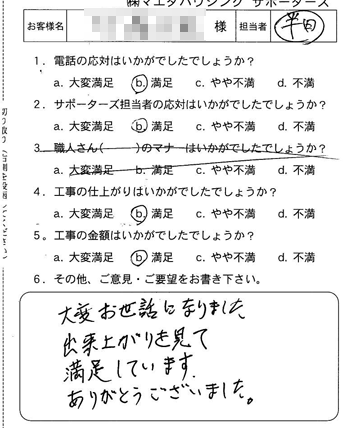 ㈱マエダハウジング サポーターズ
お客様名 様 担当者 平田
1．電話の応対はいかがでしたでしょうか？
a. 大変満足 b. 満足 c. やや不満 d. 不満
2．サポーターズ担当者の応対はいかがでしたでしょうか？
a. 大変満足 b. 満足 c. やや不満 d. 不満
3．職人さん( )のマナーはいかがでしたでしょうか？
a. 大変満足 b. 満足 c. やや不満 d. 不満
4．工事の仕上がりはいかがでしたでしょうか？
a. 大変満足 b. 満足 c. やや不満 d. 不満
5．工事の金額はいかがでしたでしょうか？
a. 大変満足 b. 満足 c. やや不満 d. 不満
6．その他、ご意見・ご要望をお書き下さい。
大変お世話になりました
出来上がりを見て
満足しています.
ありがとうございました。